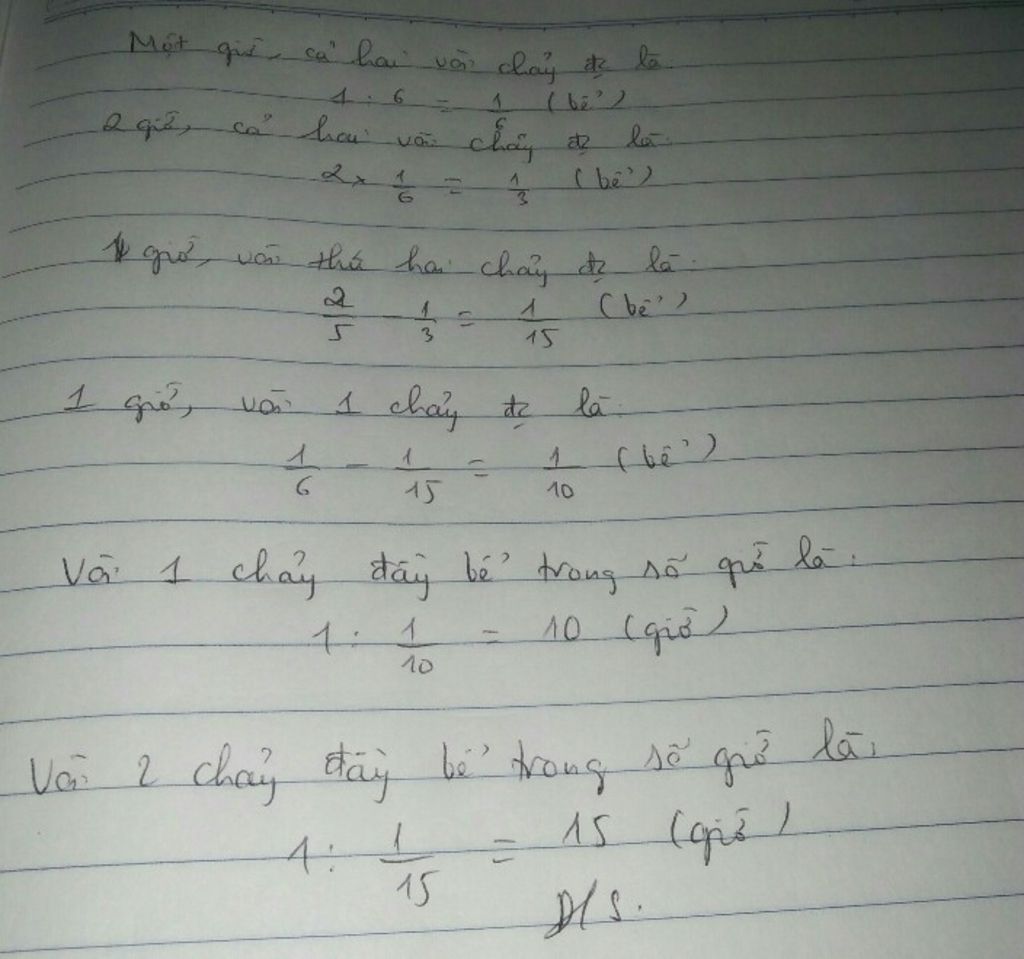 Một giờ, cả hai vòi chảy đc là:
1 : 6 = 1/6 (bể)
2 giờ, cả hai vòi chảy đc là:
2 x 1/6 = 1/3 (bể)
1 giờ, vòi thứ hai chảy đc là:
2/5 - 1/3 = 1/15 (bể)
1 giờ, vòi 1 chảy đc là:
1/6 - 1/15 = 1/10 (bể)
Vòi 1 chảy đầy bể trong số giờ là:
1 : 1/10 = 10 (giờ)
Vòi 2 chảy đầy bể trong số giờ là:
1 : 1/15 = 15 (giờ)
Đ/S.